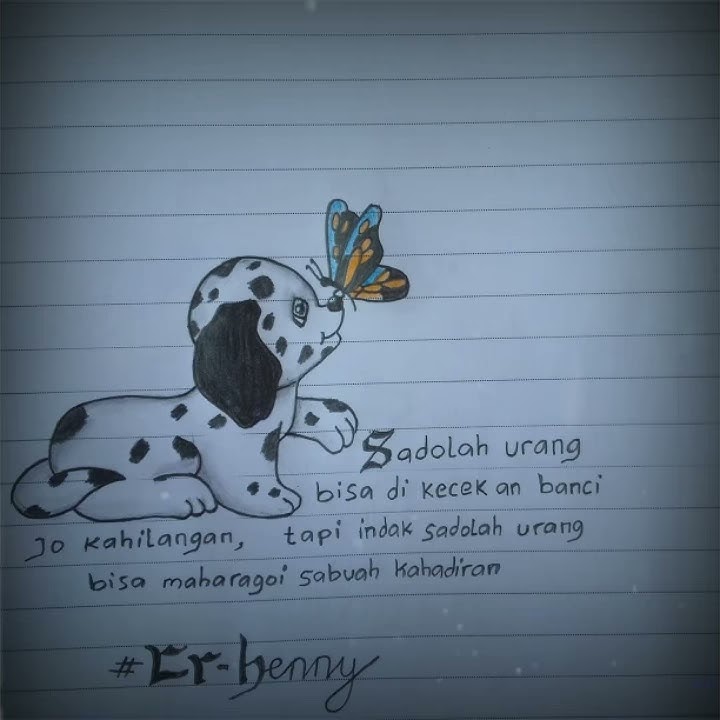 Sadolah urang
bisa di kecek an banci
Jo kahilangan, tapi indak sadolah urang
bisa maharagoi sabuah kahadiran
#Er-henny